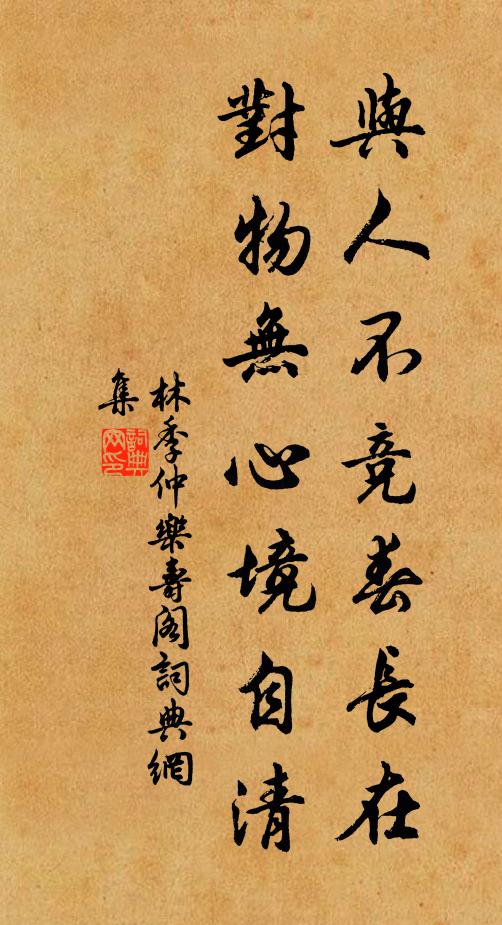 與人不竞春長在
對物無心境自清
林季仲樂壽阁詞典網
集
詞典
网印